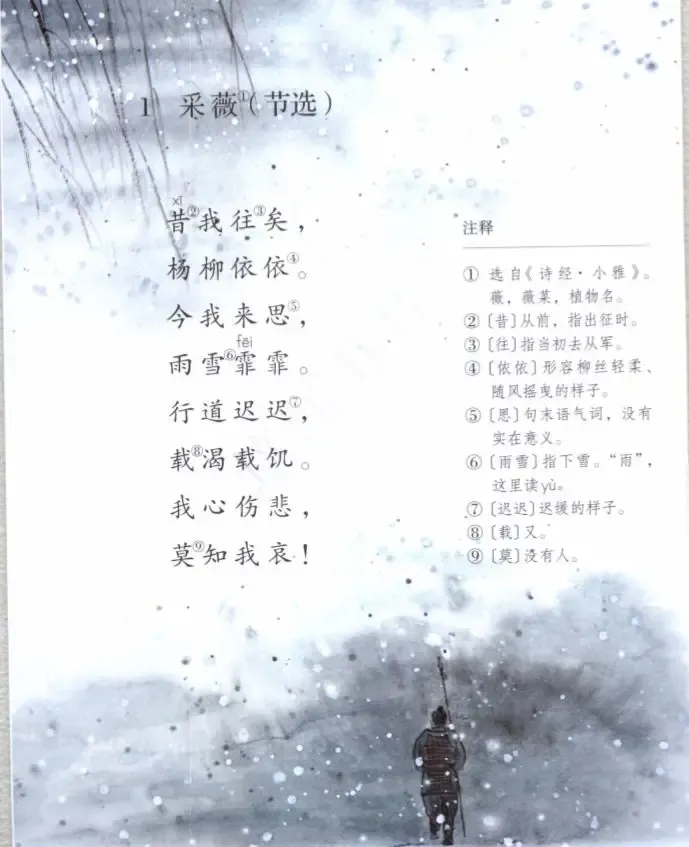 1 采薇①(节选)
xī
昔②我往③矣，
杨柳依依④。
今我来思⑤，
fēi
雨雪⑥霏霏。
行道迟迟⑦，
载⑧渴载饥。
我心伤悲，
莫⑨知我哀！
注释
① 选自《诗经·小雅》。
薇，薇菜，植物名。
②〔昔〕从前，指出征时。
③〔往〕指当初去从军。
④〔依依〕形容柳丝轻柔、
随风摇曳的样子。
⑤〔思〕句末语气词，没有
实在意义。
⑥〔雨雪〕指下雪。“雨”，
这里读yù。
⑦〔迟迟〕迟缓的样子。
⑧〔载〕又。
⑨〔莫〕没有人。